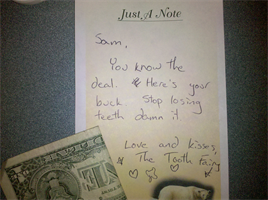 Just A Note
Sam,
You know the
deal. & Here's your
buck Stop losing
teeth damn it.
Love and kisses,
The Tooth Fairy
ONE